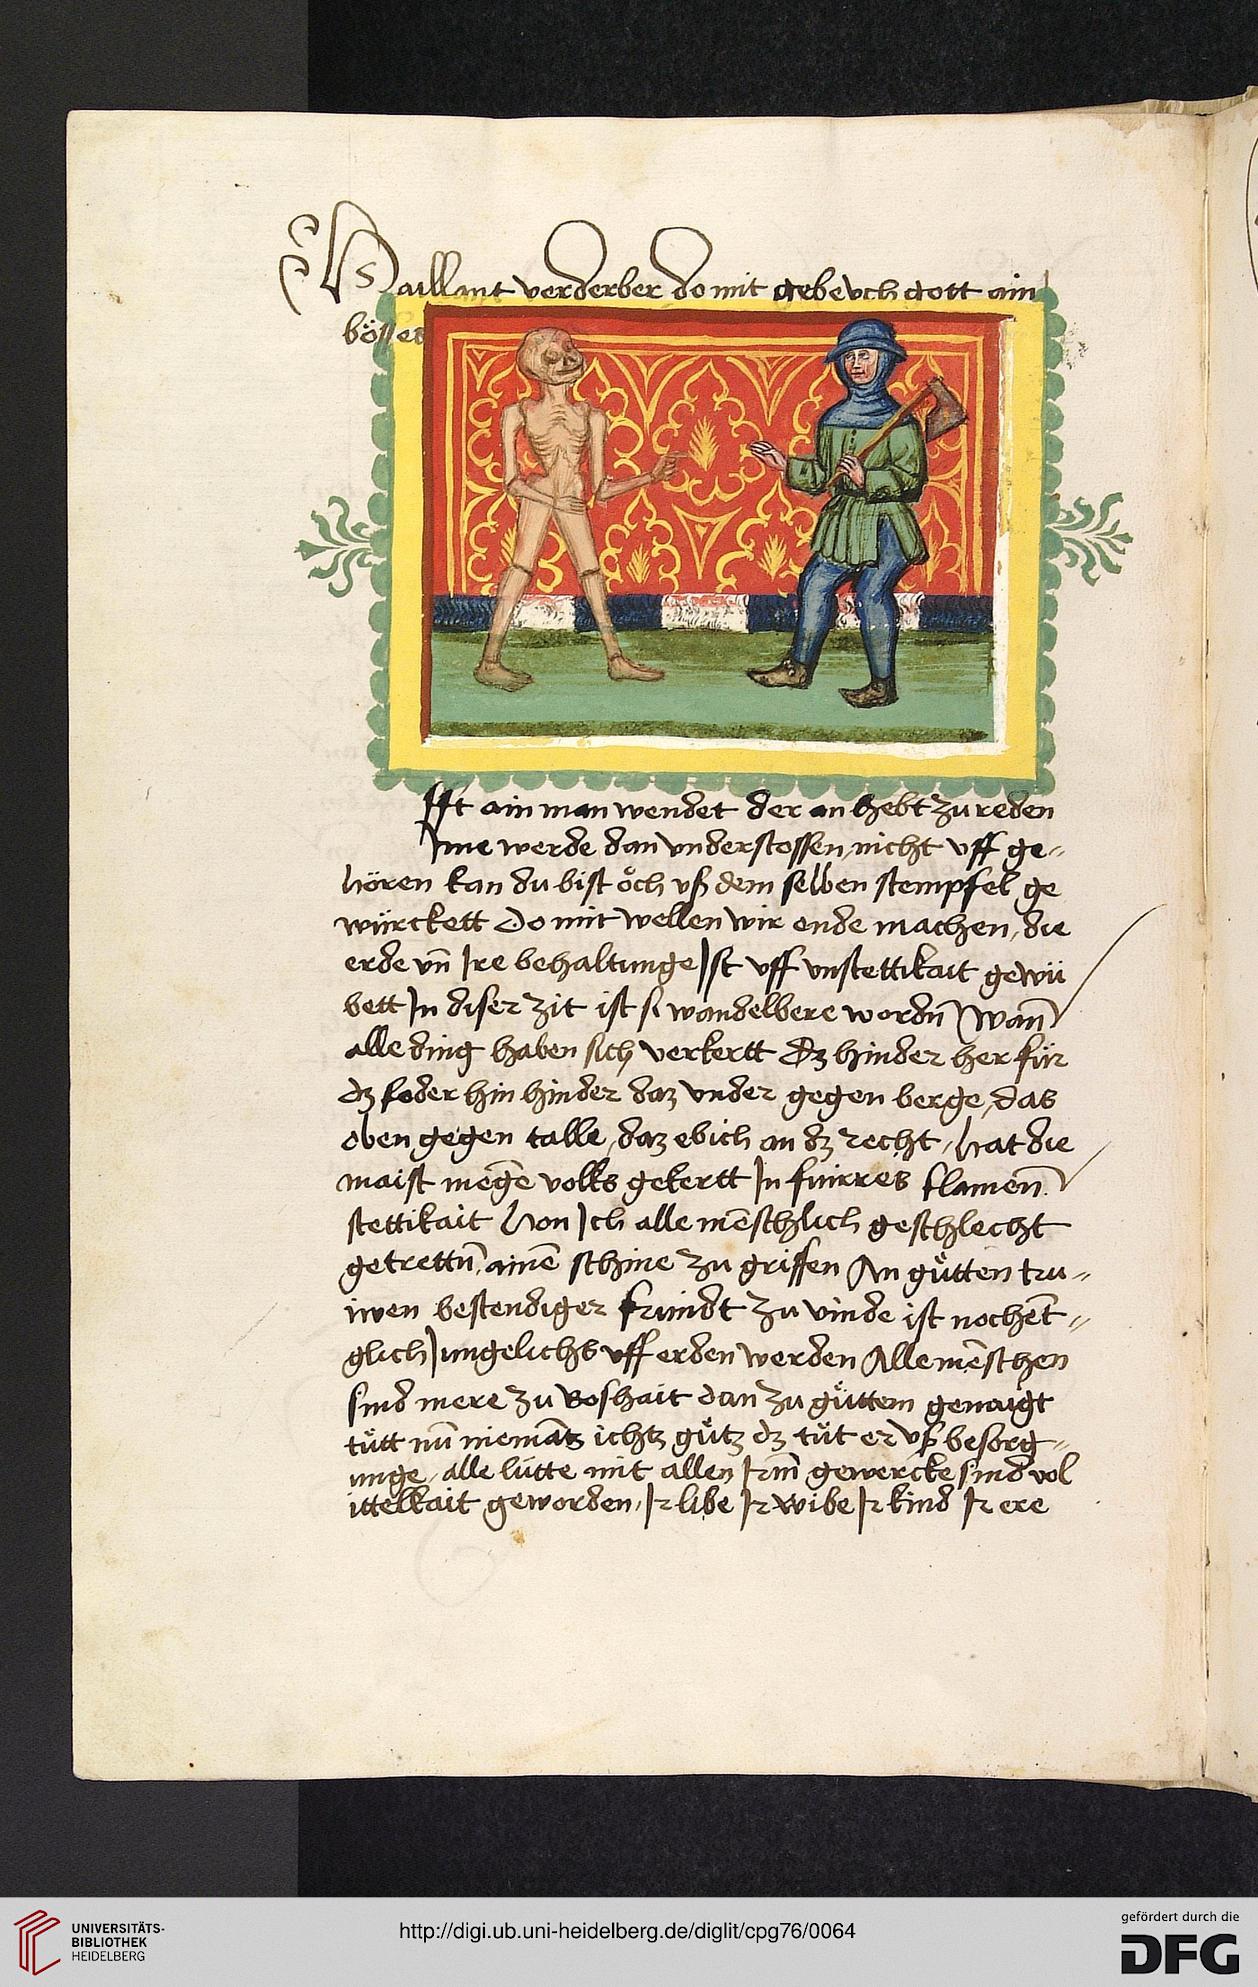 Haillant verderber do mit gebe uch gott ain
böses
Offt ain man wendet der an hebt zu reden
Ime werde dan understossen nicht uff ge-
hören kan du bist öch uß dem selben stempfel ge
würckett Do mit wellen wir ende machen, die
erde un̄ Ire behaltunge Ist uff unstettikait gewü
bett In diser zit ist si wandelbere wordn̄ Wan̄
alle ding haben sich verkertt Dz hinder her für
dz foder hin hinder daz under gegen berge, das
oben gegen talle, daz ebich an dz recht, hat die
maist mēge volks gekertt In fuirres flamen̄
stettikait Hon Ich alle mēschlich geschlecht
getrettn̄, ainē schine zu griffen An gütten tru-
iwen bestendiger frundt zu vinde ist nochēt-
glich ungelichs uff erden werden Alle mēschen
sind mere zu boshait dan zu güttem genaigt
tütt nū niemātz ichtz gütz dz tüt er uß besorg-
unge, alle lütte mit allen Irm̄ gewercke sind vol
ittelkait geworden, Ir libe Ir wibe Ir kind Ir ere
UNIVERSITÄTS-
BIBLIOTHEK
HEIDELBERG
http://digi.ub.uni-heidelberg.de/diglit/cpg76/0064
gefördert durch die
DFG